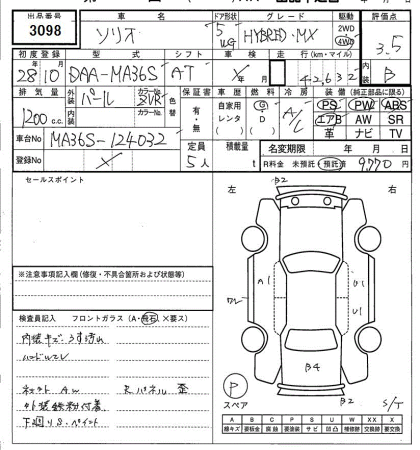 出品番号 車名 ドア形状 グレード 駆動 評価点
3098 ソリオ 5 WG HYBRID・MX 2WD 4WD 3.5
初度登録 型式 シフト 車検 走行(km・マイル) 内装
28 10 DAA-MA36S AT X年 月 42632 B
排気量 外装 カラーNo. 色替 保証書 車歴 燃料 冷房 装備(純正部品に限る)
1200 c.c. パール ZVR 有・無 自家用 レンタ G D A/C PS PW ABS
内装 カラーNo. エアB AW SR
革 ナビ TV
車台No MA36S-124032 定員 積載量 名変期限 年 月 日
登録No X 5人 t R料金 未預託・預託済 9,770 円
セールスポイント
左 右
B2
A1 U1
W2 U1
B4
B2
※注意事項記入欄(修復・不具合箇所および状態等)
検査員記入 フロントガラス(A・飛石・X要ス)
内装キズ・うす汚れ
ハンドルスレ
外装鉄粉付着
下廻りS・ペイント
P
スペア
S/T
A B C P S U W X XX X
線キズ 要板金 腐食 要塗装 サビ 凹凸 補修跡 交換跡 要交換